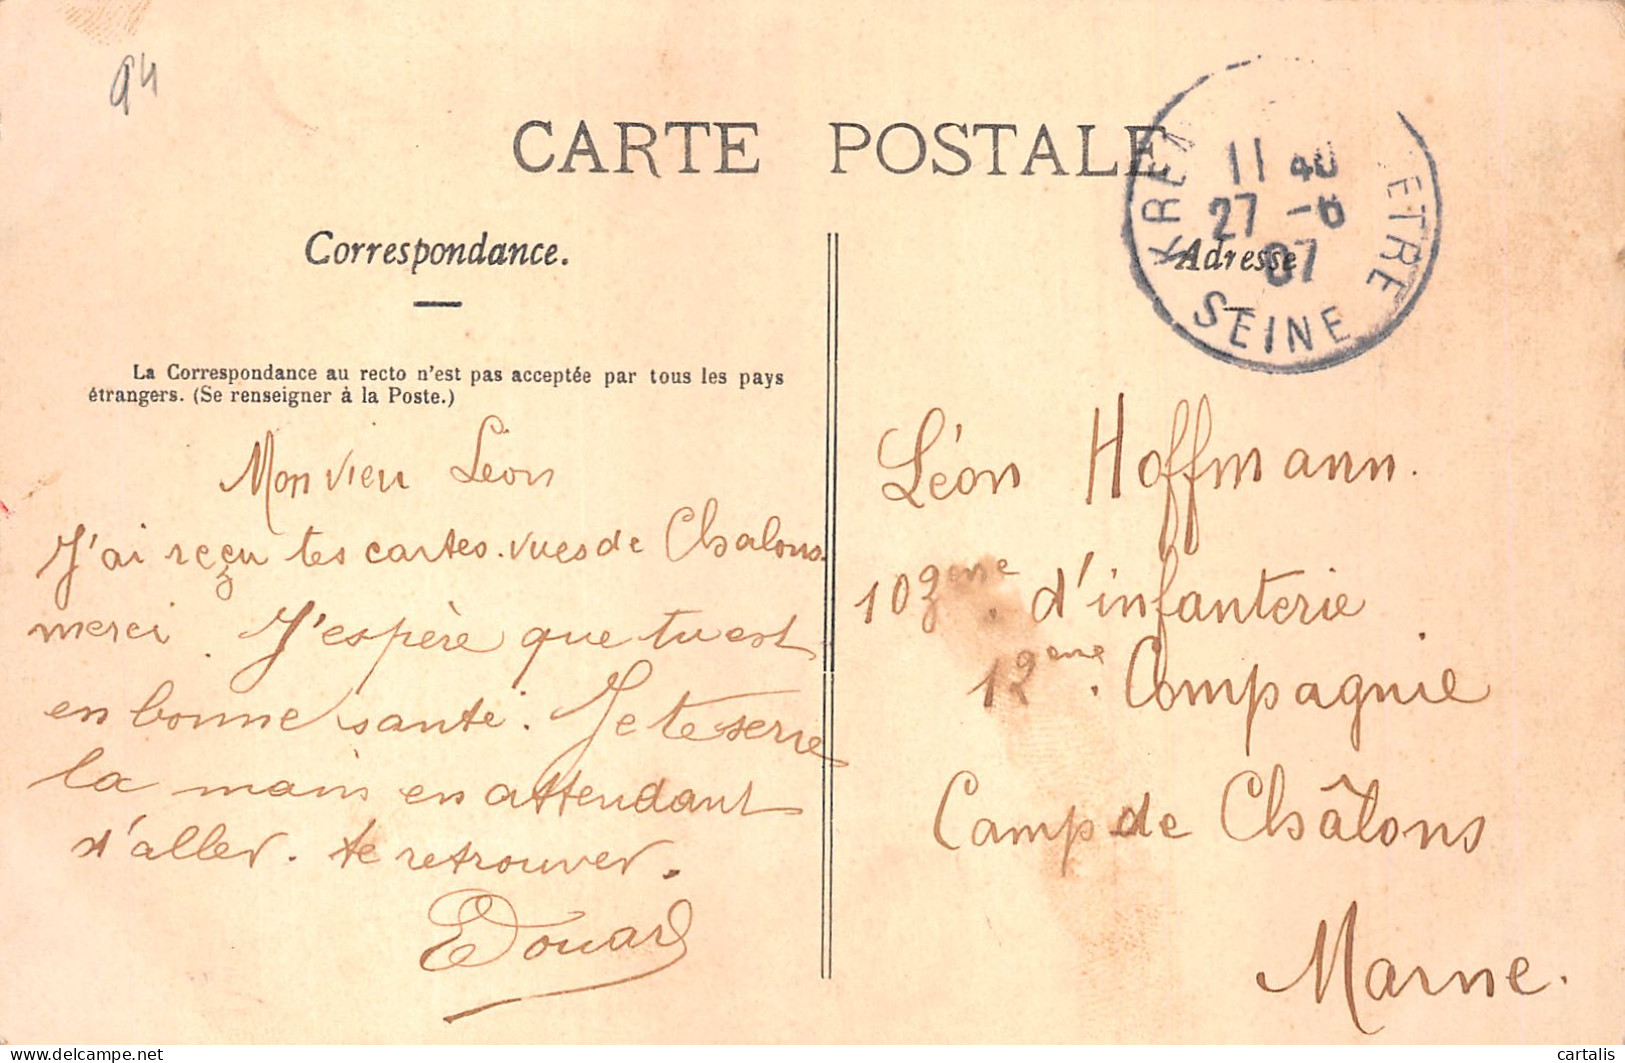 94
CARTE POSTALE
KRE ETRE
11 40
27 -6
07
SEINE
Correspondance.
Adresse
La Correspondance au recto n'est pas acceptée par tous les pays
étrangers. (Se renseigner à la Poste.)
Mon vieu Léon
J'ai reçu tes cartes-vues de Chalons
merci. J'espère que tu est
en bonne santé. Je te serre
la main en attendant
d'aller te retrouver.
Edouard
Léon Hoffmann.
103eme d'infanterie
12eme Compagnie
Camp de Châlons
Marne.
cartalis
delcampe.net